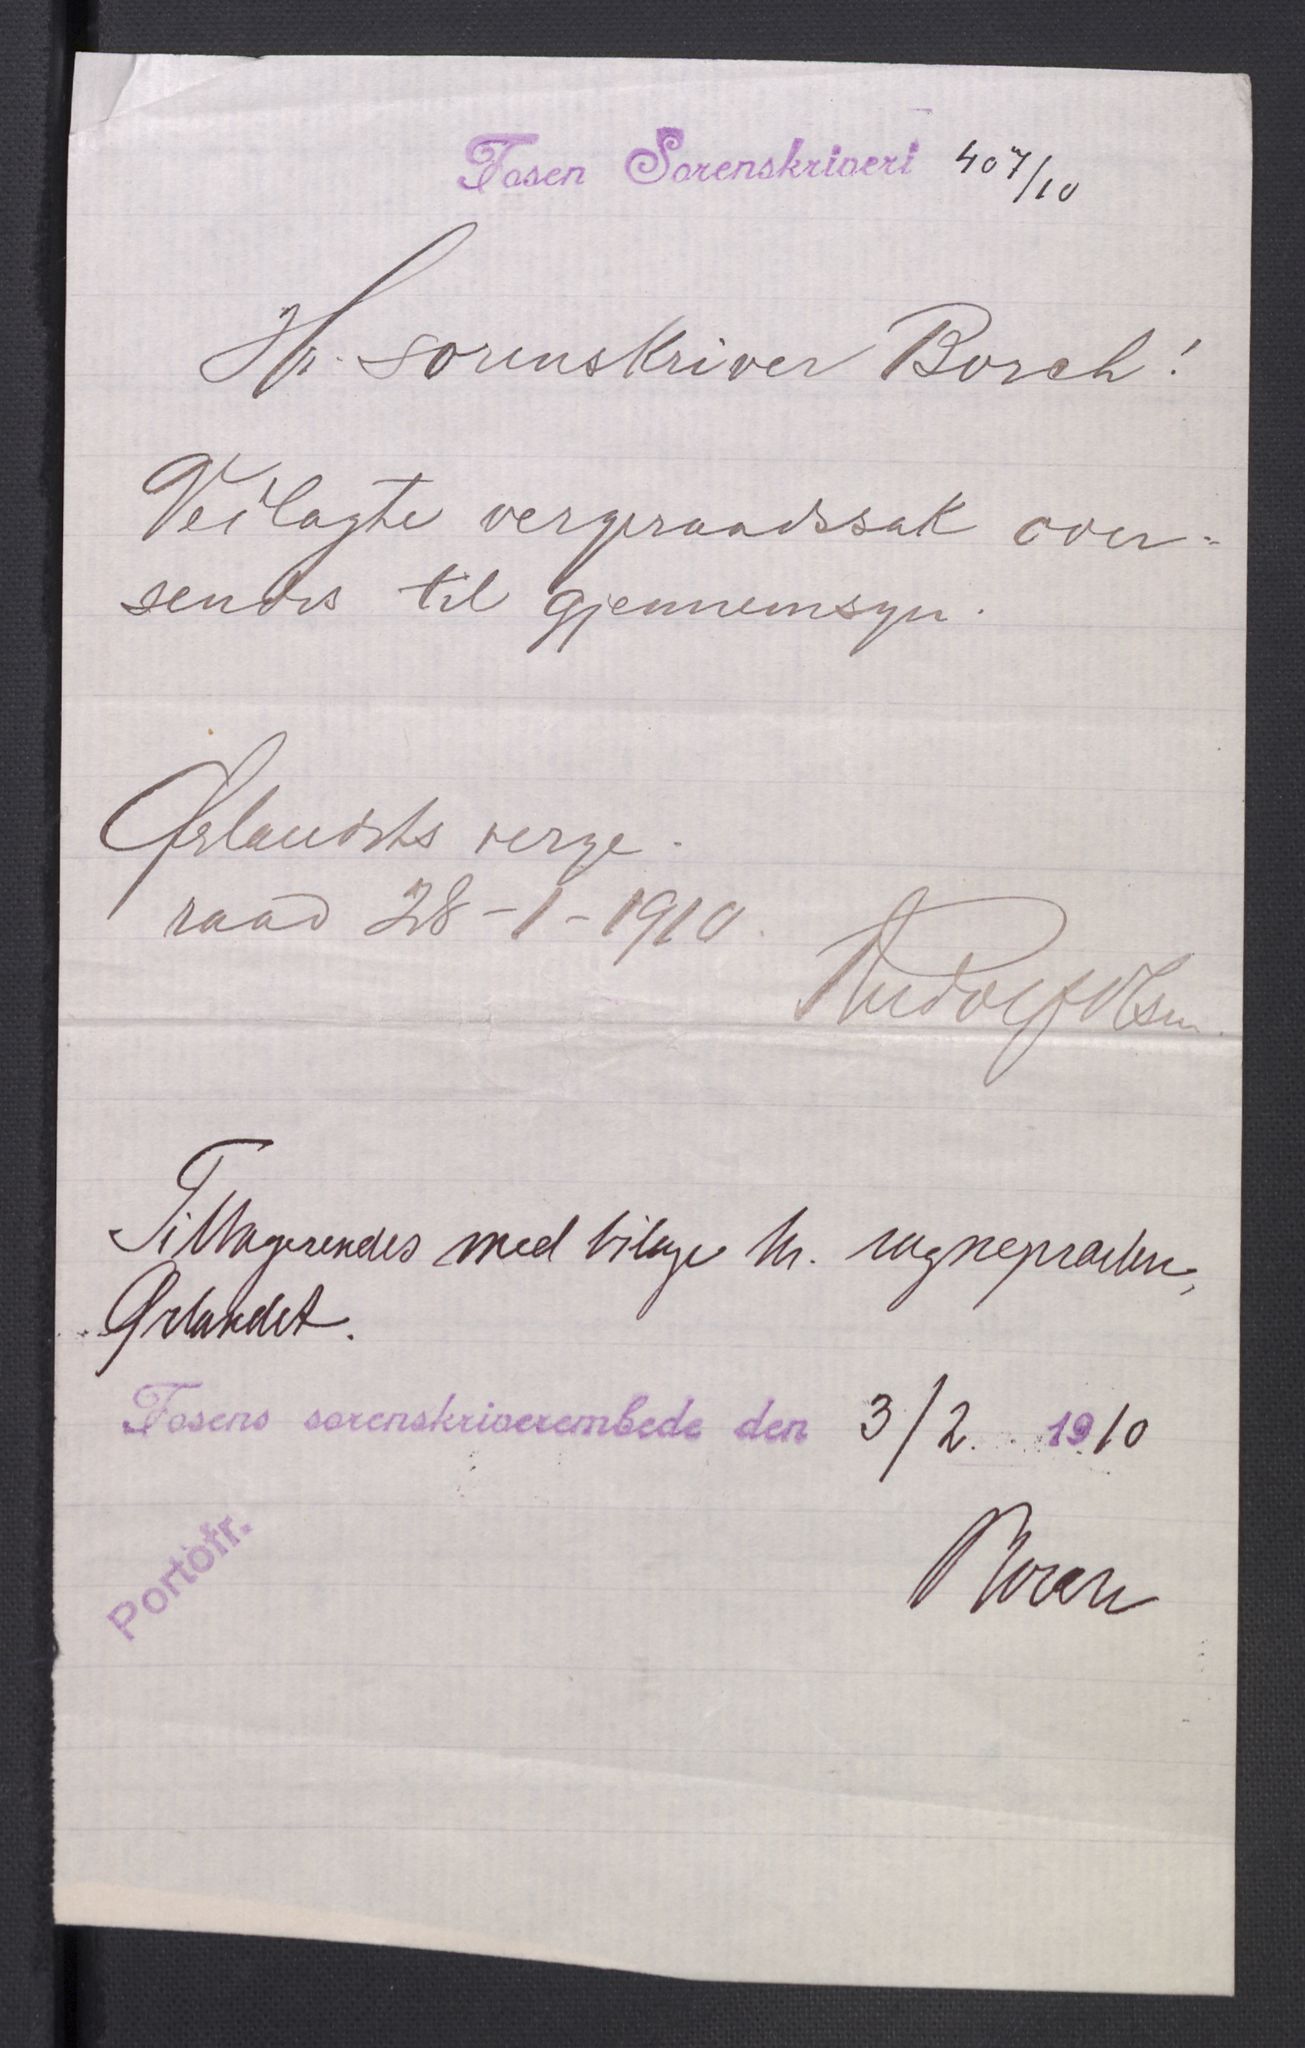 Fosen Sorenskriveri 407/10
Hr. sorenskriver Borch!
Veilagte vergeraadssak over-
sendes til gjennemsyn.
Ørlandets verge-
raad 28-1-1910.
Rudolf Olsen.
Tilbagesendes med bilage hr. sognepræsten,
Ørlandet.
Fosens sorenskriverembede den 3/2. 1910
Portofr.
Borch